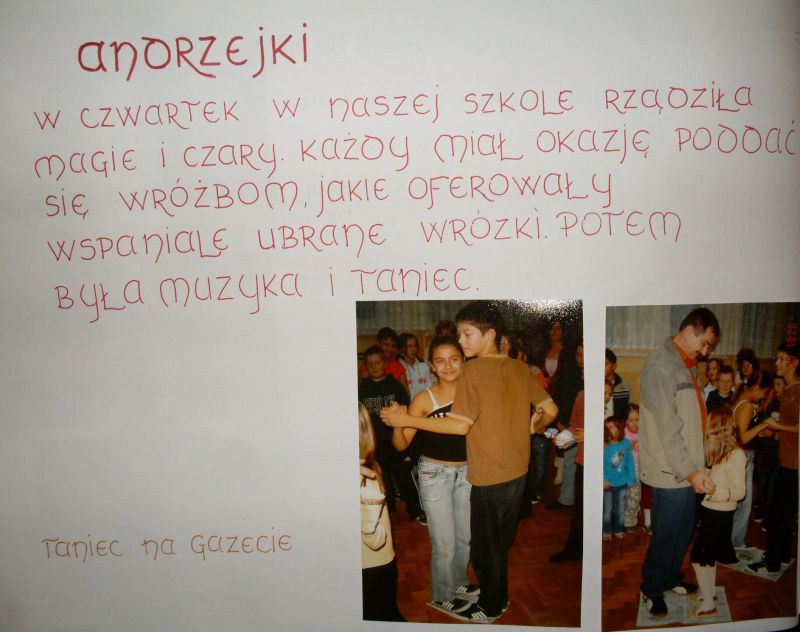 ANDRZEJKI
W CZWARTEK W NASZEJ SZKOLE RZĄDZIŁA
MAGIE I CZARY. KAŻDY MIAŁ OKAZJĘ PODDAĆ
SIĘ WRÓŻBOM, JAKIE OFEROWAŁY
WSPANIALE UBRANE WRÓZKI. POTEM
BYŁA MUZYKA I TANIEC.
TANIEC NA GAZECIE